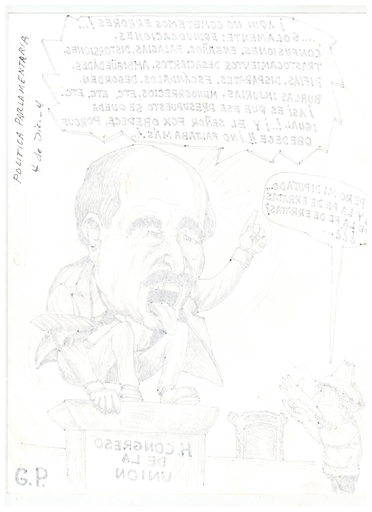 POLITICA PARLAMENTARIA
4 de Dic.-4
¡ AQUÍ NO COMETEMOS ERRORES
....SOLAMENTE: EQUIVOCACIONES,
CONFUSIONES, ENGAÑOS, FALACIAS, DISTORSIONES,
TRASTOCAMIENTOS, DESACIERTOS, AMBIGÜEDADES,
PIFIAS, DISPARATES, ESCÁNDALOS, DESORDEN,
BURLAS, INJURIAS, MENOSPRECIOS, ETC, ETC, ETC.
¡ ASÍ ES QUE ESE PRESUPUESTO SE QUEDA
IGUAL ...! ¡ Y EL SEÑOR FOX OBEDECE, PORQUE
OBEDECE !! ¡ NO FALTABA MÁS..!
PERO MI DIPUTADO..
¿ Y LA FE DE ERRATAS
FE DE ERRATAS?
H. CONGRESO
DE LA
UNION
G.P.